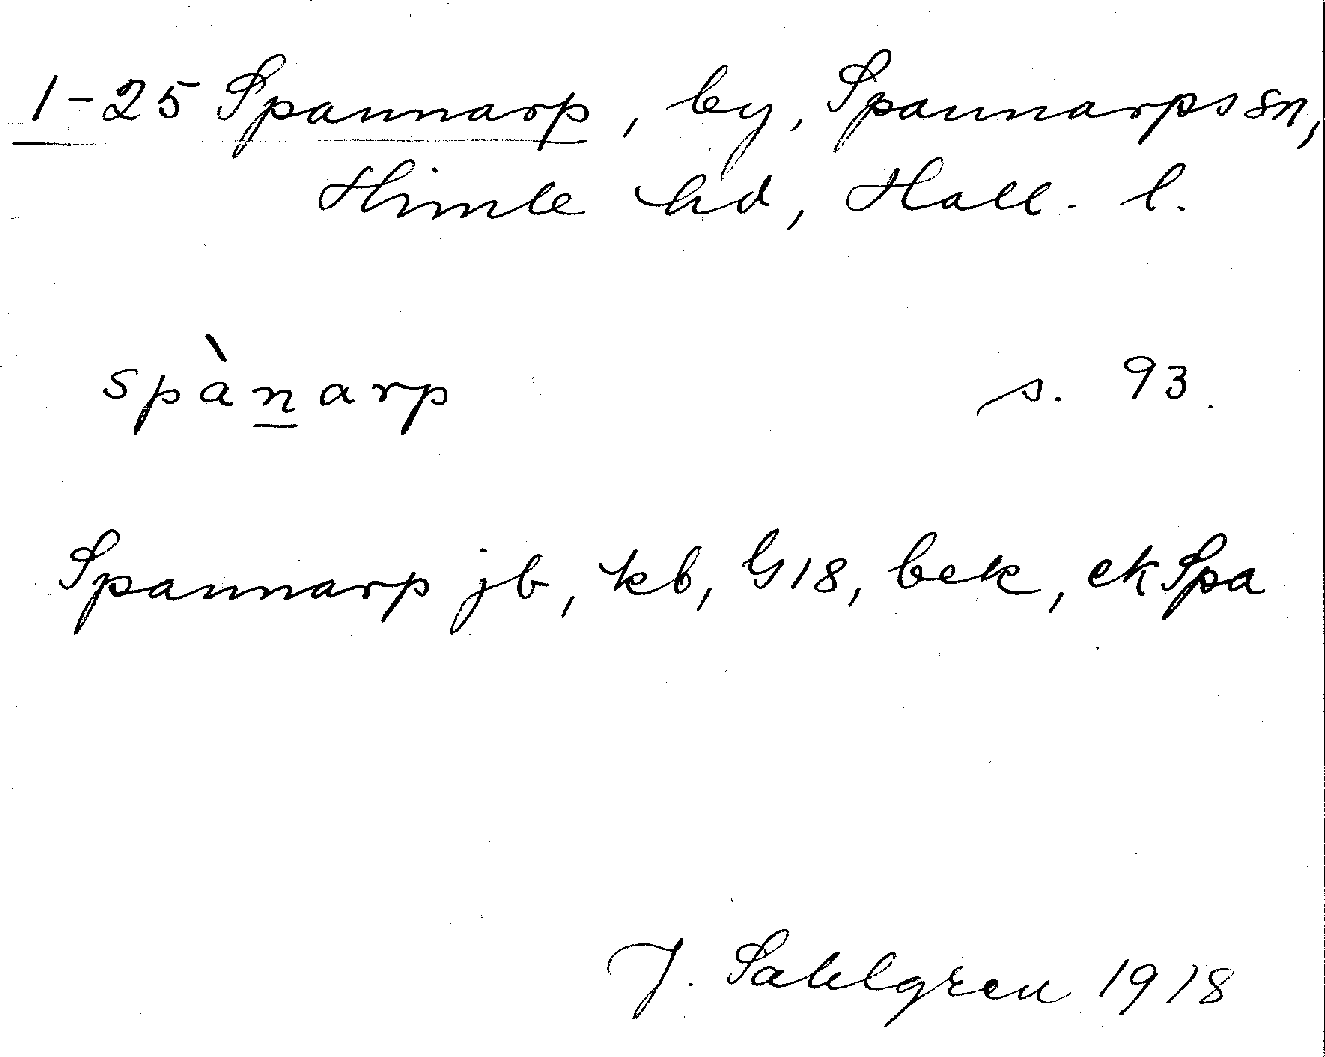 1-25 Spannarp, by, Spannarps sn,
Himle hd, Hall. l.
spànarp s. 93.
Spannarp jb, kb, G18, bek, ek Spa
J. Sahlgren 1918